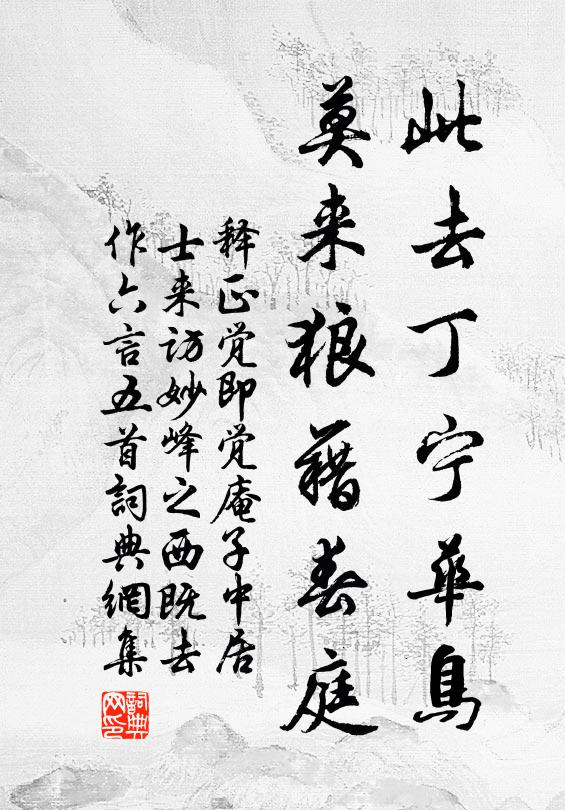 此去丁宁华鸟
莫来狼藉春庭
释正觉即觉庵子中居
士来访妙峰之西既去
作六言五首詞典網集
詞典网印